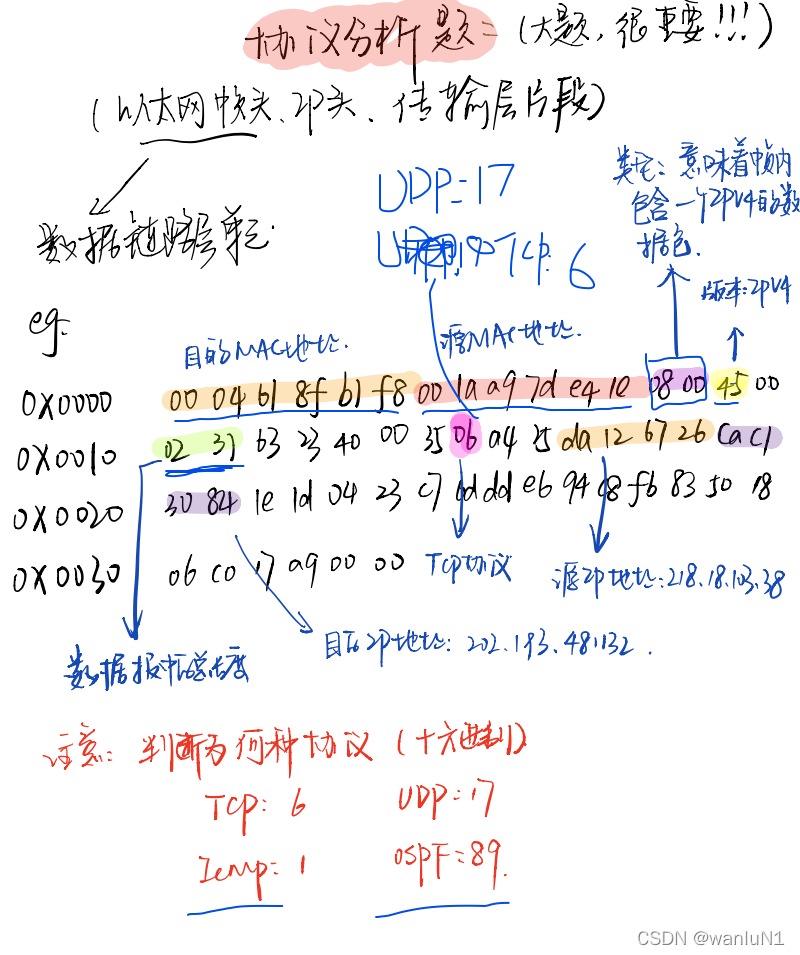 协议分析题：（大题，很重要!!!）
（以太网帧头、IP头、传输层片段）
数据链路层单元.
UDP=17
TCP: 6
类型：意味着帧内
包含一个IPV4的数
据包.
版本:IPV4
eg:
目的MAC地址.
源MAC地址.
0X0000 00 04 61 8f b1 f8 00 1a a9 7d e4 1e 08 00 45 00
0X0010 02 31 63 23 40 00 35 06 a4 25 da 12 67 26 ca c1
0X0020 30 84 1e 1d 04 23 c7 dd eb 94 c8 fb 83 50 18
0X0030 06 c0 17 a9 00 00
TCP协议
源IP地址:218.18.103.38
目的IP地址：202.193.48.132.
数据报总长度
注意：判断为何种协议（十六进制）
TCP: 6 UDP=17
Icmp: 1 OSPF=89.
CSDN @wanluN1